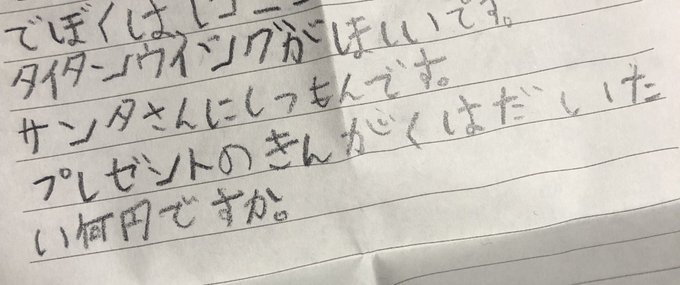 でぼくは、
タイタンウイングがほしいです。
サンタさんにしつもんです。
プレゼントのきんがくはだいたい
い何円ですか。